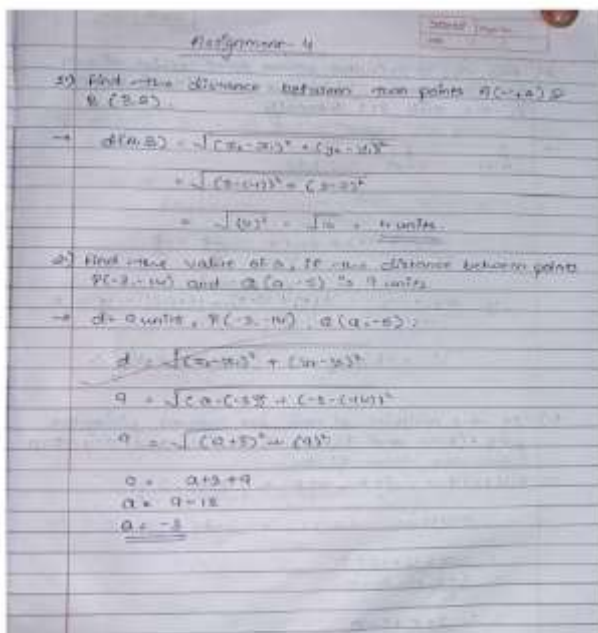 Assignment - 4
Q1) Find the distance between two points A(-1,2) &
B (3,2).
→ d(A,B) = √(x₂-x₁)² + (y₂-y₁)²
= √(3-(-1))² + (2-2)²
= √(4)² = √16 = 4 units.
2) Find the value of a, if the distance between points
P(-3,-14) and Q(a,-5) is 9 units
→ d= 9 units, P(-3,-14), Q(a,-5);
d = √(x₂-x₁)² + (y₂-y₁)²
9 = √(a-(-3))² + (-5-(-14))²
9 = √(a+3)² + (9)²
9 = a+3+9
a = 9-12
a = -3